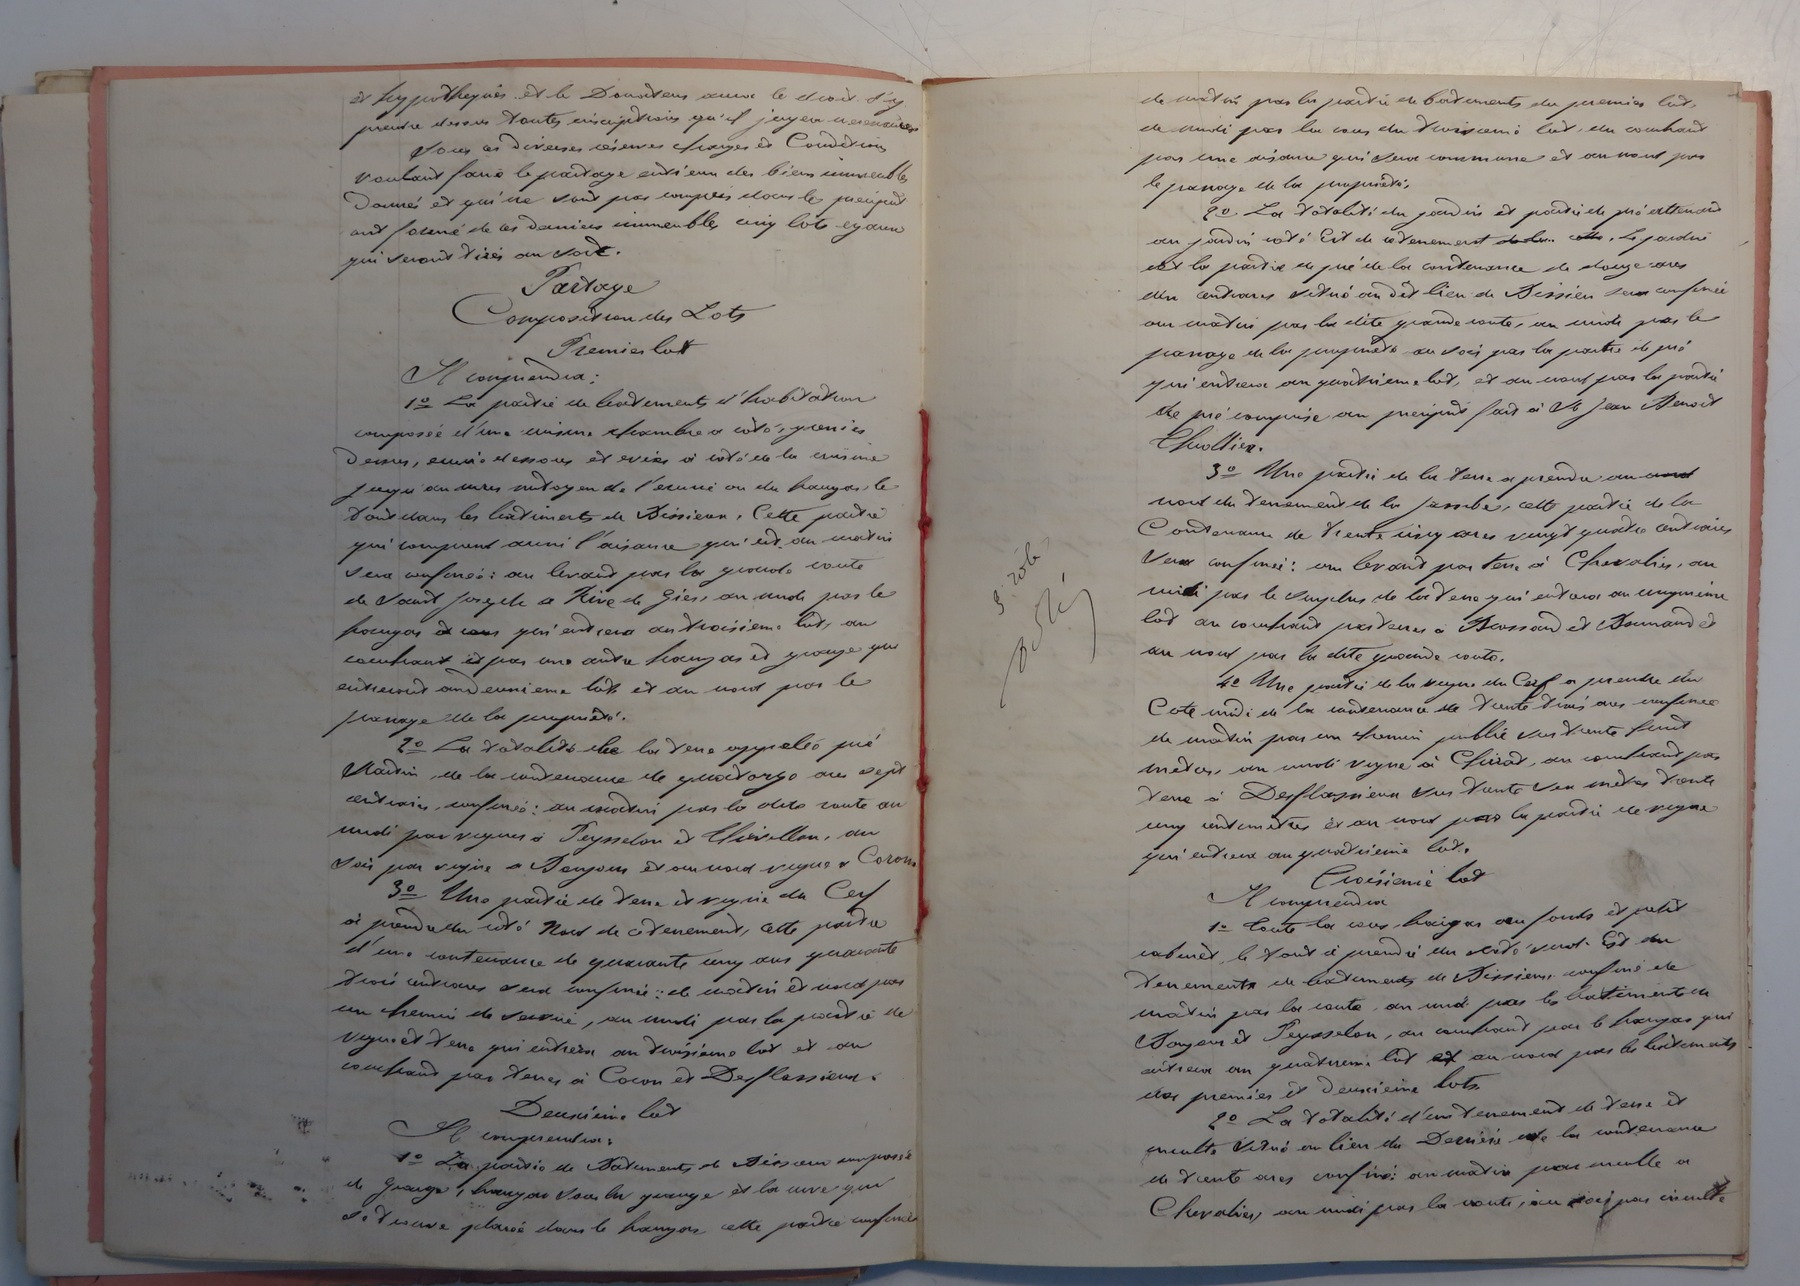 et hypothèques et le Donateur aura le droit d'y
prendre dessus toutes inscriptions qu'il jugera nécessaires
Sous ces diverses réserves charges et Conditions
voulant faire le partage entr'eux des biens immeubles
Donnés et qui ne sont pas compris dans le préciput
ont formé de ces derniers immeubles cinq lots egaux
qui seront tirés au sort.
Partage
Composition des Lots
Premier lot
Il comprendra:
1º La partie de batiments d'habitation
composée d'une cuisine chambre a coté, grenier
dessus, écurie dessous et evier à coté de la cuisine
jusqu'au murs mitoyen de l'écurie ou du hangar, le
tout dans les bâtiments de Bissieux, Cette partie
qui comprend aussi l'aisance qui est au matin
sera confinée: au levant par la grande route
de Saint Joseph a Rive de Gier, au midi par le
hangar et cour qui entrera au troisième lot, au
couchant et par une autre hangar et grange qui
entreront au deuxieme lot et au nord par le
passage de la propriété.
2º La totalité de la terre appelée pré
Martin, de la contenance de quatorze ares sept
centiares, confinée: au matin par la dite route au
midi par vignes à Peysselon et Thivillon, au
soir par vigne a Bonjour et au nord vigne à Coron
3º Une partie de terre et vigne du Cerf
à prendre du coté Nord de ce tenement, cette partie
d'une contenance de quarante cinq ares quarante
trois centiares sera confinée: de matin et nord par
un chemin de service, au midi par la partie de
vigne et terre qui entrera au troisième lot et au
couchant par terres à Coron et Desflassieux.
Deuxième lot
Il comprendra:
1º La partie de Batiments de Bissieux composée
de Grange, hangar sous la grange et la cuve qui
se trouve placée dans le hangar cette partie confinée
3e rôle
de matin par la partie de batiments du premier lot,
de midi par la cour du troisième lot, du couchant
par une aisance qui sera commune et au nord par
le passage de la propriété.
2º La totalité du jardin et partie de pré attenant
au jardin coté Est de ce tenement. Le jardin
et la partie de pré de la contenance de douze ares
dix centiares situé au dit lieu de Bissieu sera confinée
au matin par la dite grande route, au midi par le
passage de la propriété au soir par la partie de pré
qui entrera au quatrième lot, et au nord par la partie
de pré comprise au préciput fait à Sr Jean Benoit
Thollier.
3º Une partie de la terre a prendre au nord
nord du tenement de la, cette partie de la
Contenance de trente cinq ares vingt quatre centiares
sera confinée: au levant par terre à Chevalier, au
midi par le surplus de la terre qui entrera au cinquième
lot au couchant par terres à Brossard et Bonnand et
au nord par la dite grande route.
4º Une partie de la vigne du Cerf a prendre du
Coté midi de la contenance de trente trois ares confinée
de matin par un chemin public sur trente huit
mètres, au midi vigne à Chirat, au couchant par
terre à Desflassieux sur trente six mètres trente
cinq centimètres et au nord par la partie de vigne
qui entrera au quatrième lot.
Troisième lot
Il comprendra
1º Toute la cour, hangar au fonds et petit
cabinet, le tout à prendre du coté sud Est du
tenements de batiments de Bissieux confiné de
matin par la route, au midi par les batiments de
Bonjour et Peysselon, au couchant par le hangar qui
entrera au quatrieme lot et au nord par les batiments
des premier et deuxième lots
2º La totalité d'un tenement de terre et
inculte situé au lieu du de la contenance
de trente ares confiné: au matin par inculte a
Chevalier, au midi par la route, au soir par inculte